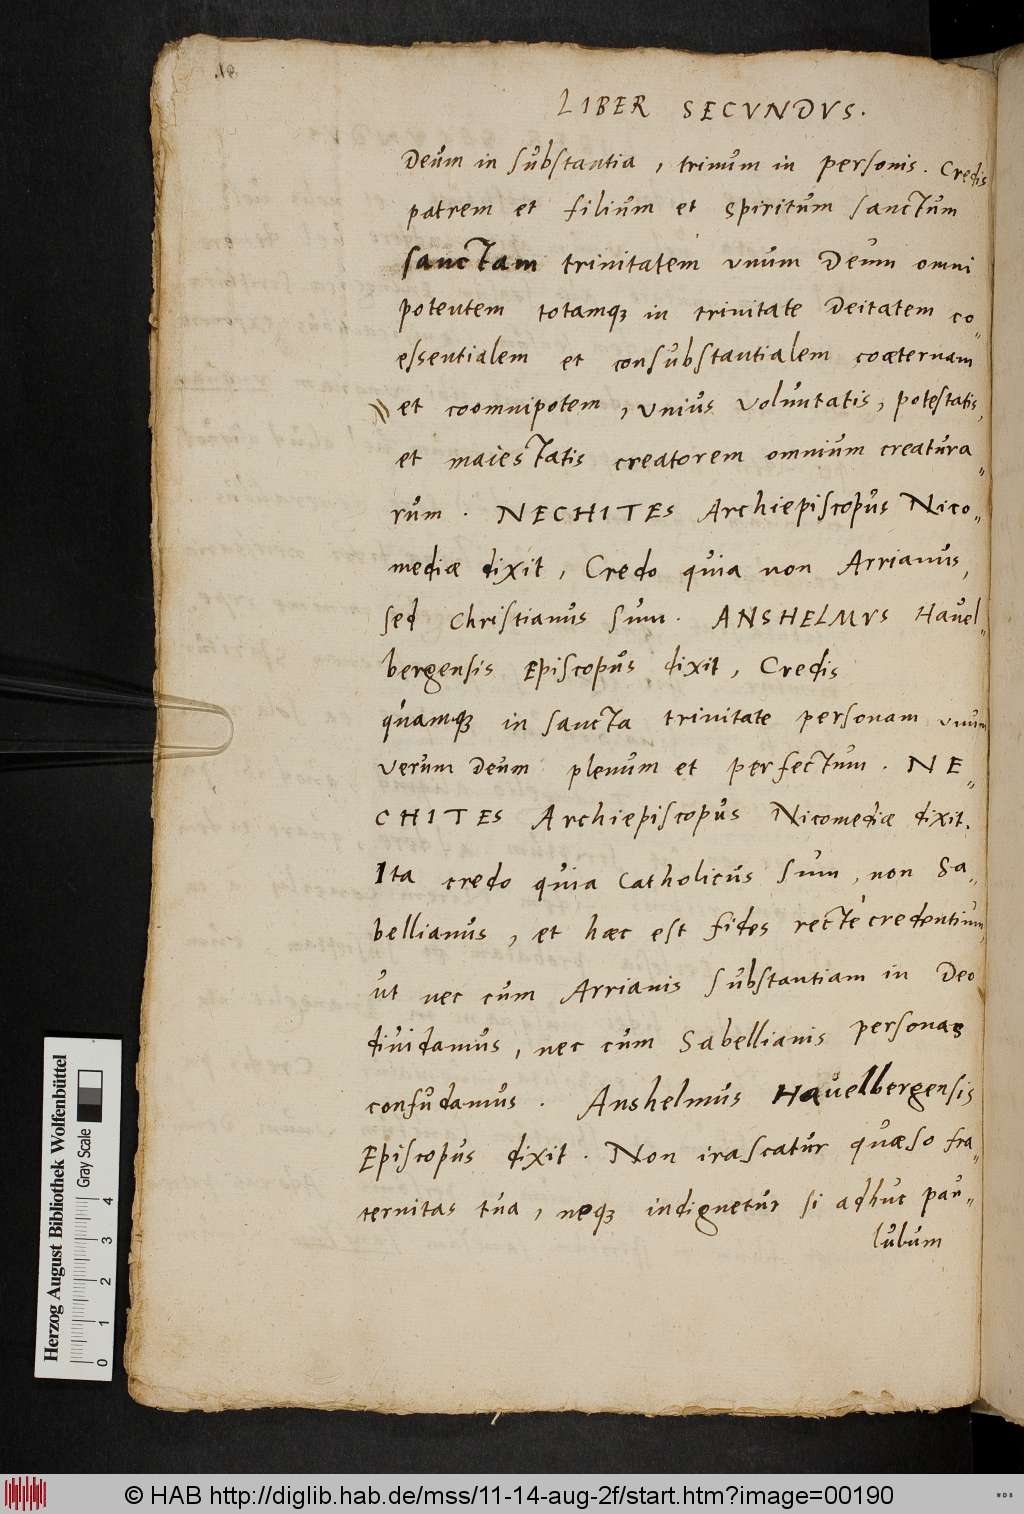 LIBER SECVNDVS.
Deum in substantia, trinum in personis. Credis
patrem et filium et spiritum sanctum
sanctam trinitatem vnum Deum omni
potentem totamqꝫ in trinitate Deitatem co„
essentialem et consubstantialem coæternam
et coomnipotem, vnius voluntatis, potestatis,
et maiestatis creatorem omnium creatura„
rum. NECHITES Archiepiscopus Nico„
mediæ dixit, Credo quia non Arrianus,
sed Christianus sum. ANSHELMVS Hauel„
bergensis Episcopus dixit, Credis
quamqꝫ in sancta trinitate personam vnum
verum Deum plenum et perfectum. NE„
CHITES Archiepiscopus Nicomediæ dixit.
Ita credo quia Catholicus sum, non Sa„
bellianus, et hæc est fides rectè credentium,
ut nec cum Arrianis substantiam in Deo
diuidamus, nec cum Sabellianis personas
confudamus. Anshelmus Hauelbergensis
Episcopus dixit. Non irascatur quæso fra„
ternitas tua, neqꝫ indignetur si adhuc pau„
lulum
Herzog August Bibliothek Wolfenbüttel
Gray Scale
0 1 2 3 4
© HAB http://diglib.hab.de/mss/11-14-aug-2f/start.htm?image=00190